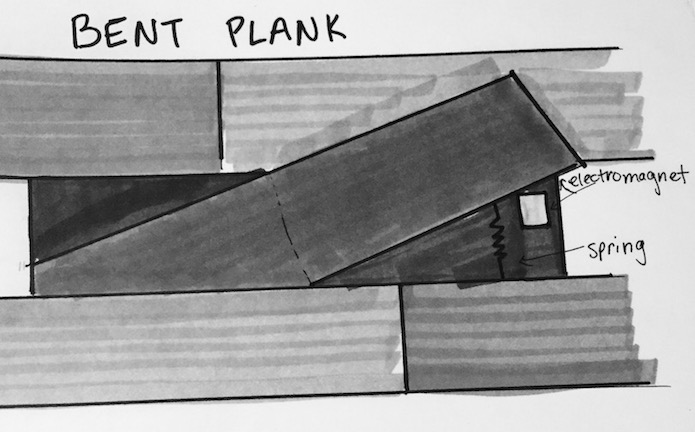 BENT PLANK
electromagnet
spring